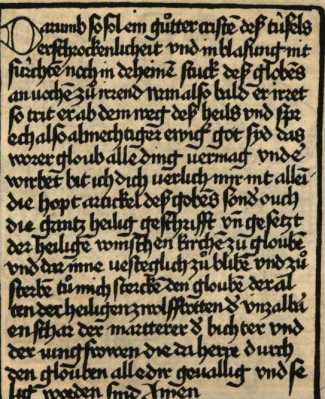 Darumb so sol ein gůtter cristē deß tüfels
erschrockenlicheit vnd in blasung nit
fürchtē noch in deheinē stuck deß globēs
an voche zů irrend Wan also bald er irret
so trit er ab dem weg deß heils vnd spr
ech also almechtiger ewig got syd das
worer gloub alle ding vermag vnd
wirbet bit ich dich verlich mir nit allei
die hopt artickel deß gobēs sond ouch
die grantz heilig geschrifft vn̄ gesetzt
der heilige kirchē zů gloubē
vnd dar inne vesteglich zů blibē vnd zů
sterbē tů mich sterckē den gloubē der al
ten der heiligen zwolffbotten vnzalbri
en schar der martterer bichter vnd
der iungfrowen die da herre durch
den glouben alle dir geuallig vnd se
lig worden sind Amen